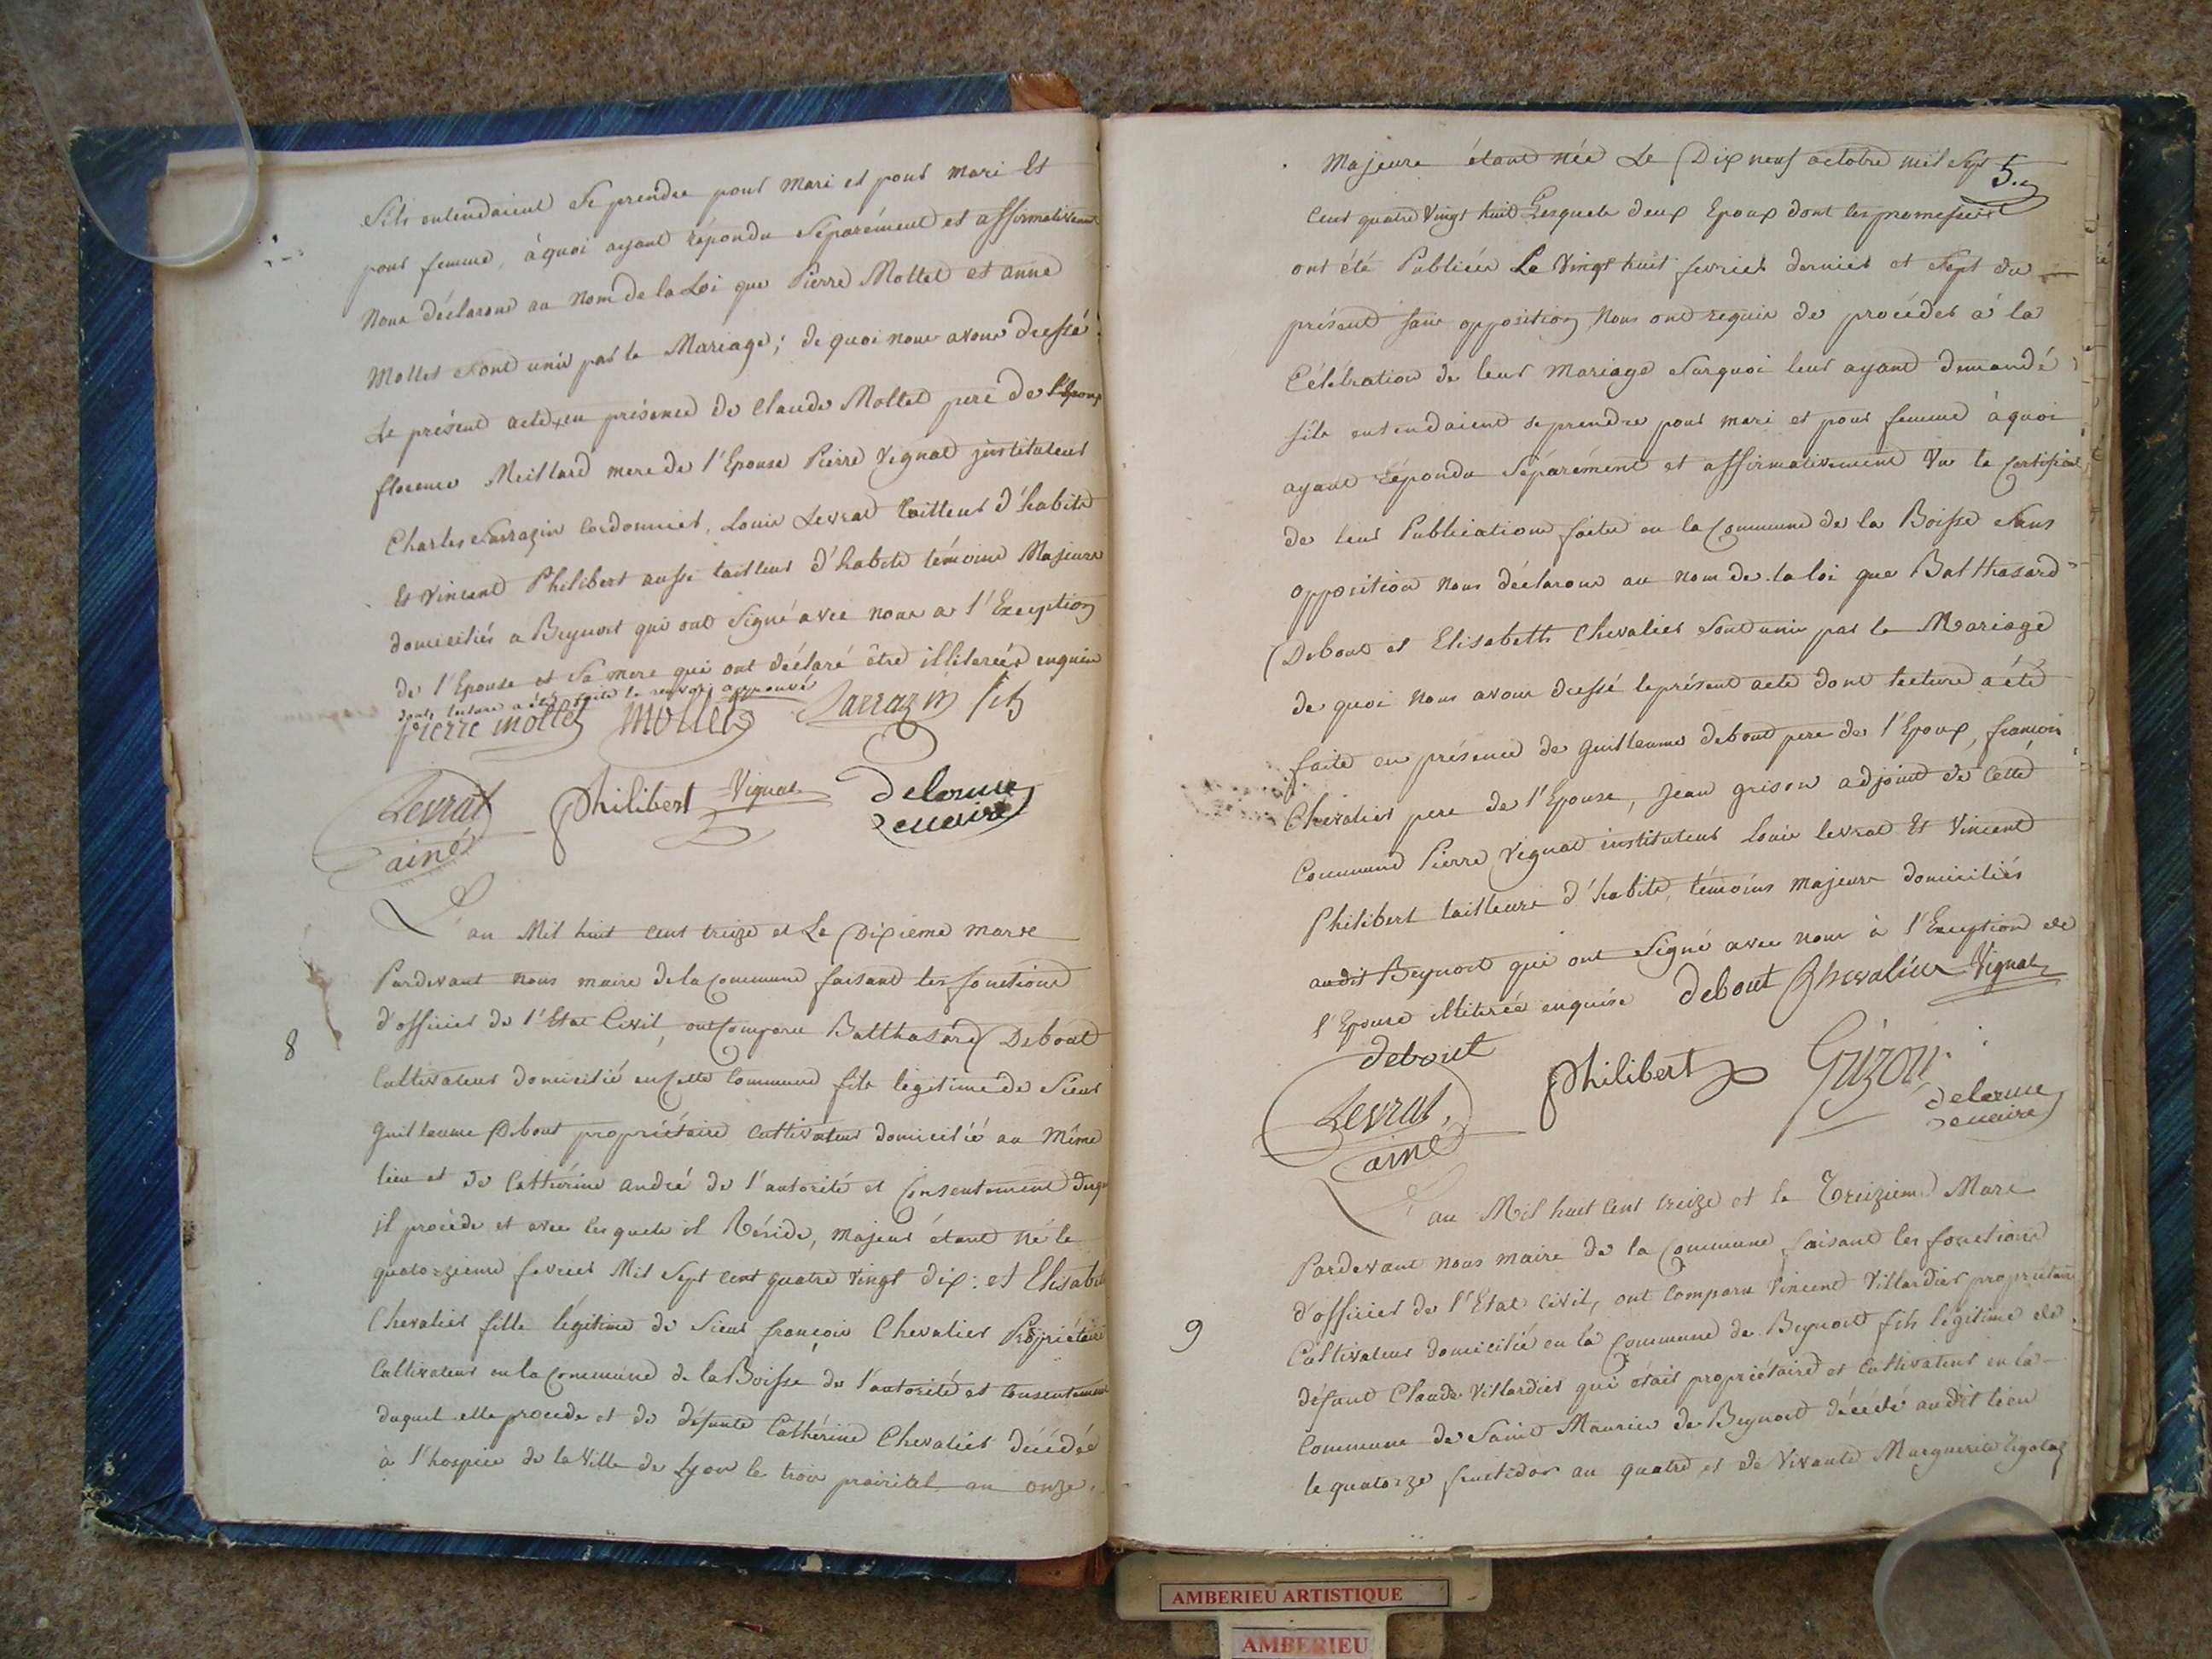 s'ils entendaient se prendre pour mari et pour mari et
pour femme, à quoi ayant répondu séparément et affirmativement
Nous déclarons au nom de la Loi que Pierre Mottet et anne
Mottet sont unis par le Mariage; de quoi nous avons dressé
le présent acte, en présence de Claude Mottet pere de l'Epoux
florence Meillard mere de l'Epouse Pierre Vignat instituteur
Charles Sarrazin Cordonnier, Louis Levrat tailleur d'habits
Et Vincent Philibert aussi tailleur d'habits témoins Majeurs
domiciliés a Beynost qui ont Signé avec nous a l'Exception
de l'Epouse et Sa mere qui ont déclaré être illiterées enquis
dont lecture a été faite le renvoi approuvé
pierre mottet mottet Sarrazin fils
Levrat ainé Philibert Vignat delorme maire
L'an Mil huit cent treize et Le Dixieme mars
Pardevant nous maire de la Commune faisant les fonctions
8
d'officier de l'Etat Civil, ont Comparu Balthasard Debout
Cultivateur domicilié en cette Commune fils légitime de Sieur
Guillaume Debout propriétaire cultivateur domicilié au Même
lieu et de Cathérine andré de l'autorité et Consentement
il procède et avec lesquels il Réside, Majeur étant né le
quatorzieme fevrier Mil Sept cent quatre vingt dix: et Elisabeth
Chevalier fille légitime de Sieur françois Chevalier Propriétaire
Cultivateur en la Commune de la Boisse de l'autorité et Consentement
duquel elle procede et de défunte Cathérine Chevalier décédée
à l'hospice de la Ville de Lyon le trois prairial an onze.
5.
Majeure étant née Le Dix neuf octobre mil Sept
Cent quatre Vingt huit Lesquels deux Epoux dont les promesses
ont été Publiées Le Vingt huit fevrier dernier et Sept du
présent sans opposition Nous ont requis de procéder à la
Célébration de leur Mariage Surquoi leur ayant demandé
s'ils entendaient se prendre pour mari et pour femme à quoi
ayant répondu Séparément et affirmativement Vu le Certificat
de leur Publications faites en la Commune de la Boisse Sans
opposition Nous déclarons au nom de la loi que Balthasard
Debout et Elisabeth Chevalier Sont unis par le Mariage
de quoi nous avons dressé le présent acte dont lecture a été
faite en présence de Guillaume debout pere de l'Epoux, françois
Chevalier pere de l'Epouse, Jean grison adjoint de Cette
Commune Pierre Vignat instituteur Louis levrat Et Vincent
Philibert tailleurs d'habits, témoins Majeurs domiciliés
audit Beynost qui ont Signé avec nous à l'Exception de
l'Epouse illiterée enquise debout Chevalier Vignat
debout
Levrat ainé Philibert Guizon delorme maire
L'an Mil huit Cent treize et le Treizieme Mars
Pardevant Nous maire de la Commune faisant les fonctions
d'officier de l'Etat Civil, ont Comparu Vincent Villardier propriétaire
9
Cultivateur domicilié en la Commune de Beynost fils légitime de
défunt Claude Villardier qui était propriétaire et Cultivateur en la
Commune de Saint Maurice de Beynost décédé audit lieu
le quatorze fructidor an quatre et de Vivante Marguerite
AMBERIEU ARTISTIQUE
AMBERIEU